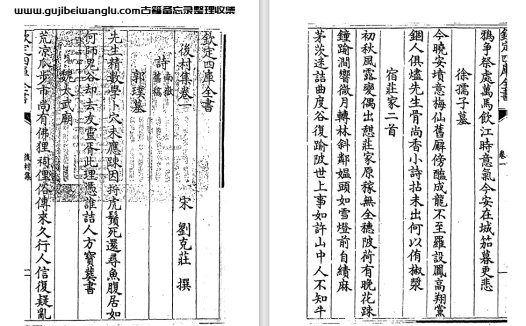 www.gujibeiwanglu.com古籍备忘录整理收集
欽定四庫全書
後村集卷一
宋 劉克莊 撰
詩 南嶽舊稿
郭璞墓
先生精數學卜穴未應踈因捋虎鬚死還尋魚腹居如
何師鬼谷却去友靈胥此理憑誰詰人方寶葬書
魏太武廟
荒凉瓜步市尚有佛狸祠俚俗傳來久行人信復疑亂
欽定四庫全書
後村集
欽定四庫全書
卷一
鴉爭祭處萬馬飲江時意氣今安在城笳暮更悲
徐孺子墓
今曉安墳意梅仙舊廨傍醢成龍不至羅設鳳高翔黨
錮人俱燼先生骨尚香小詩拈未出何以侑椒漿
宿莊家二首
初秋風露變偶出憩莊家原稼無全穗陂荷有晚花踈
鐘踰澗響微月轉林斜鄰媼頭如雪燈前自績麻
茅茨迷詰曲度谷復踰陂世上事如許山中人不知牛